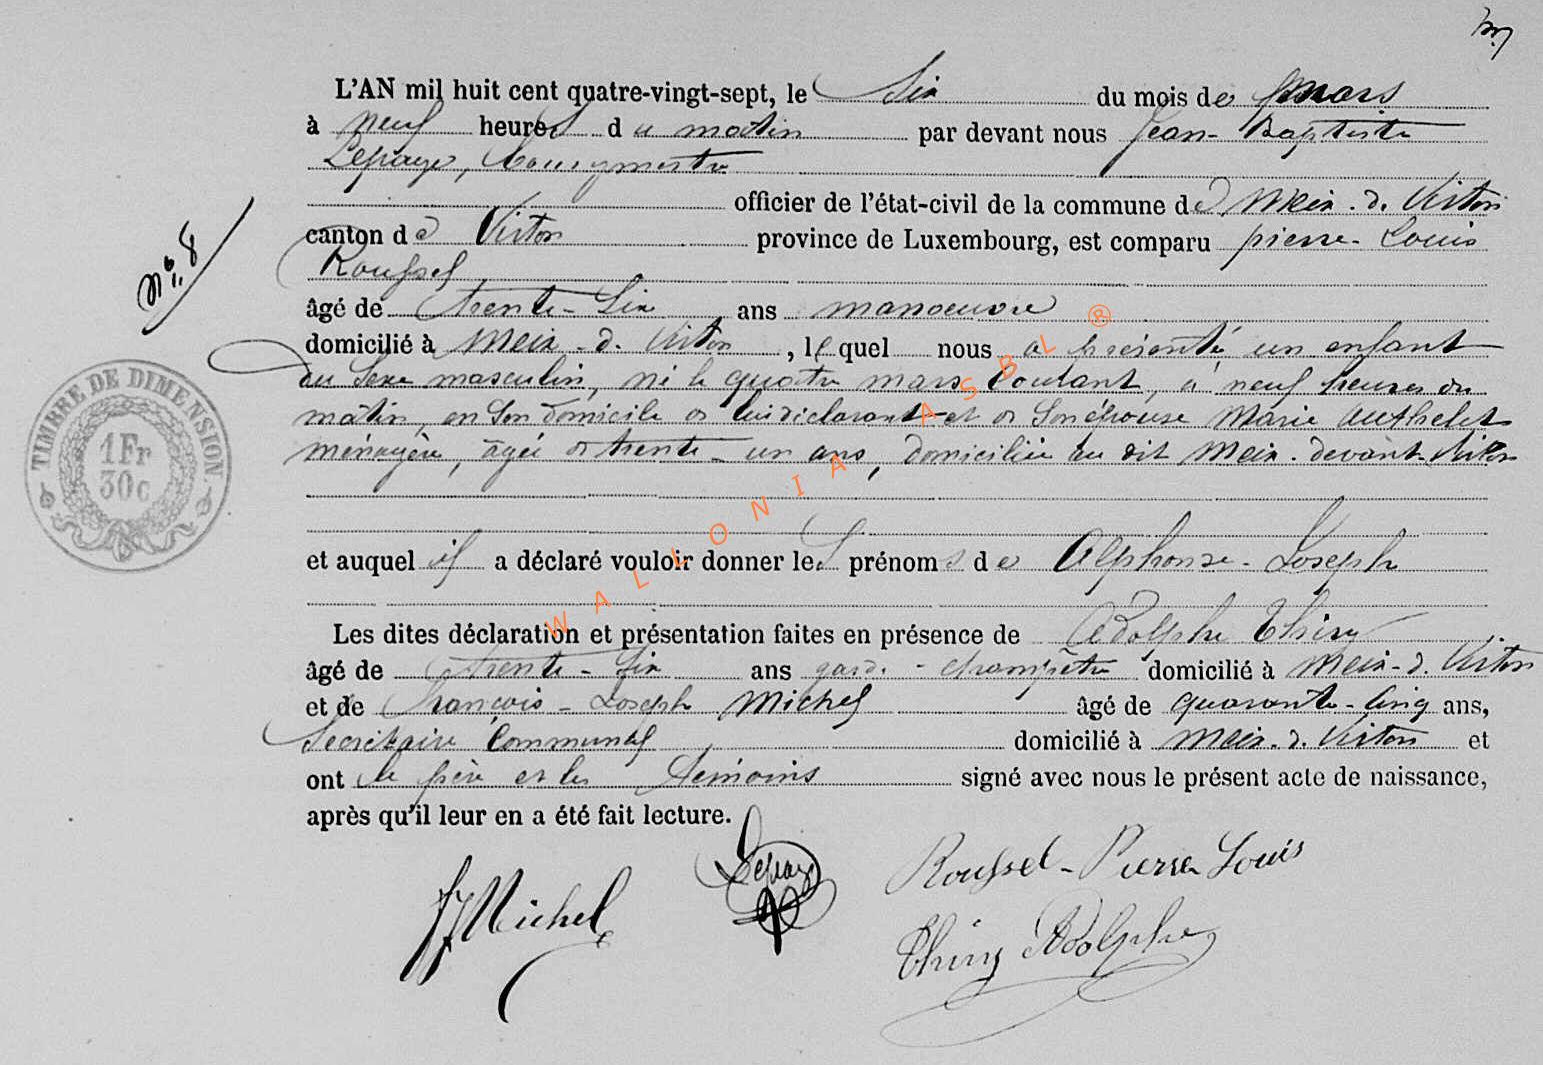 L'AN mil huit cent quatre-vingt-sept, le Six du mois de mars
à neuf heures du matin par devant nous Jean-Baptiste
Lepage, bourgmestre
officier de l'état-civil de la commune de Meix-d. Virton
canton de Virton province de Luxembourg, est comparu pierre-Louis
Roussel
âgé de trente-Six ans manoeuvre
domicilié à Meix-d. Virton, lequel nous a présenté un enfant
du Sexe masculin, né le quatre mars Courant, à neuf heures du
matin, en Son domicile de lui déclarant et de Son épouse Marie Authelet
ménagère, âgée de trente-un ans, domiciliée au dit Meix-devant-Virton
et auquel il a déclaré vouloir donner les prénoms de Alphonse-Joseph
Les dites déclaration et présentation faites en présence de Adolphe Thiry
âgé de trente-Six ans garde-champêtre domicilié à Meix-d. Virton
et de François-Joseph Michel âgé de quarante-Cinq ans,
Secrétaire Communal domicilié à Meix-d. Virton et
ont le père et les témoins signé avec nous le présent acte de naissance,
après qu'il leur en a été fait lecture.
N° 8
TIMBRE DE DIMENSION.
1 Fr
30c
WALLONIA ASBL ®
FJ Michel
Lepage
Roussel-Pierre Louis
Thiry Adolphe